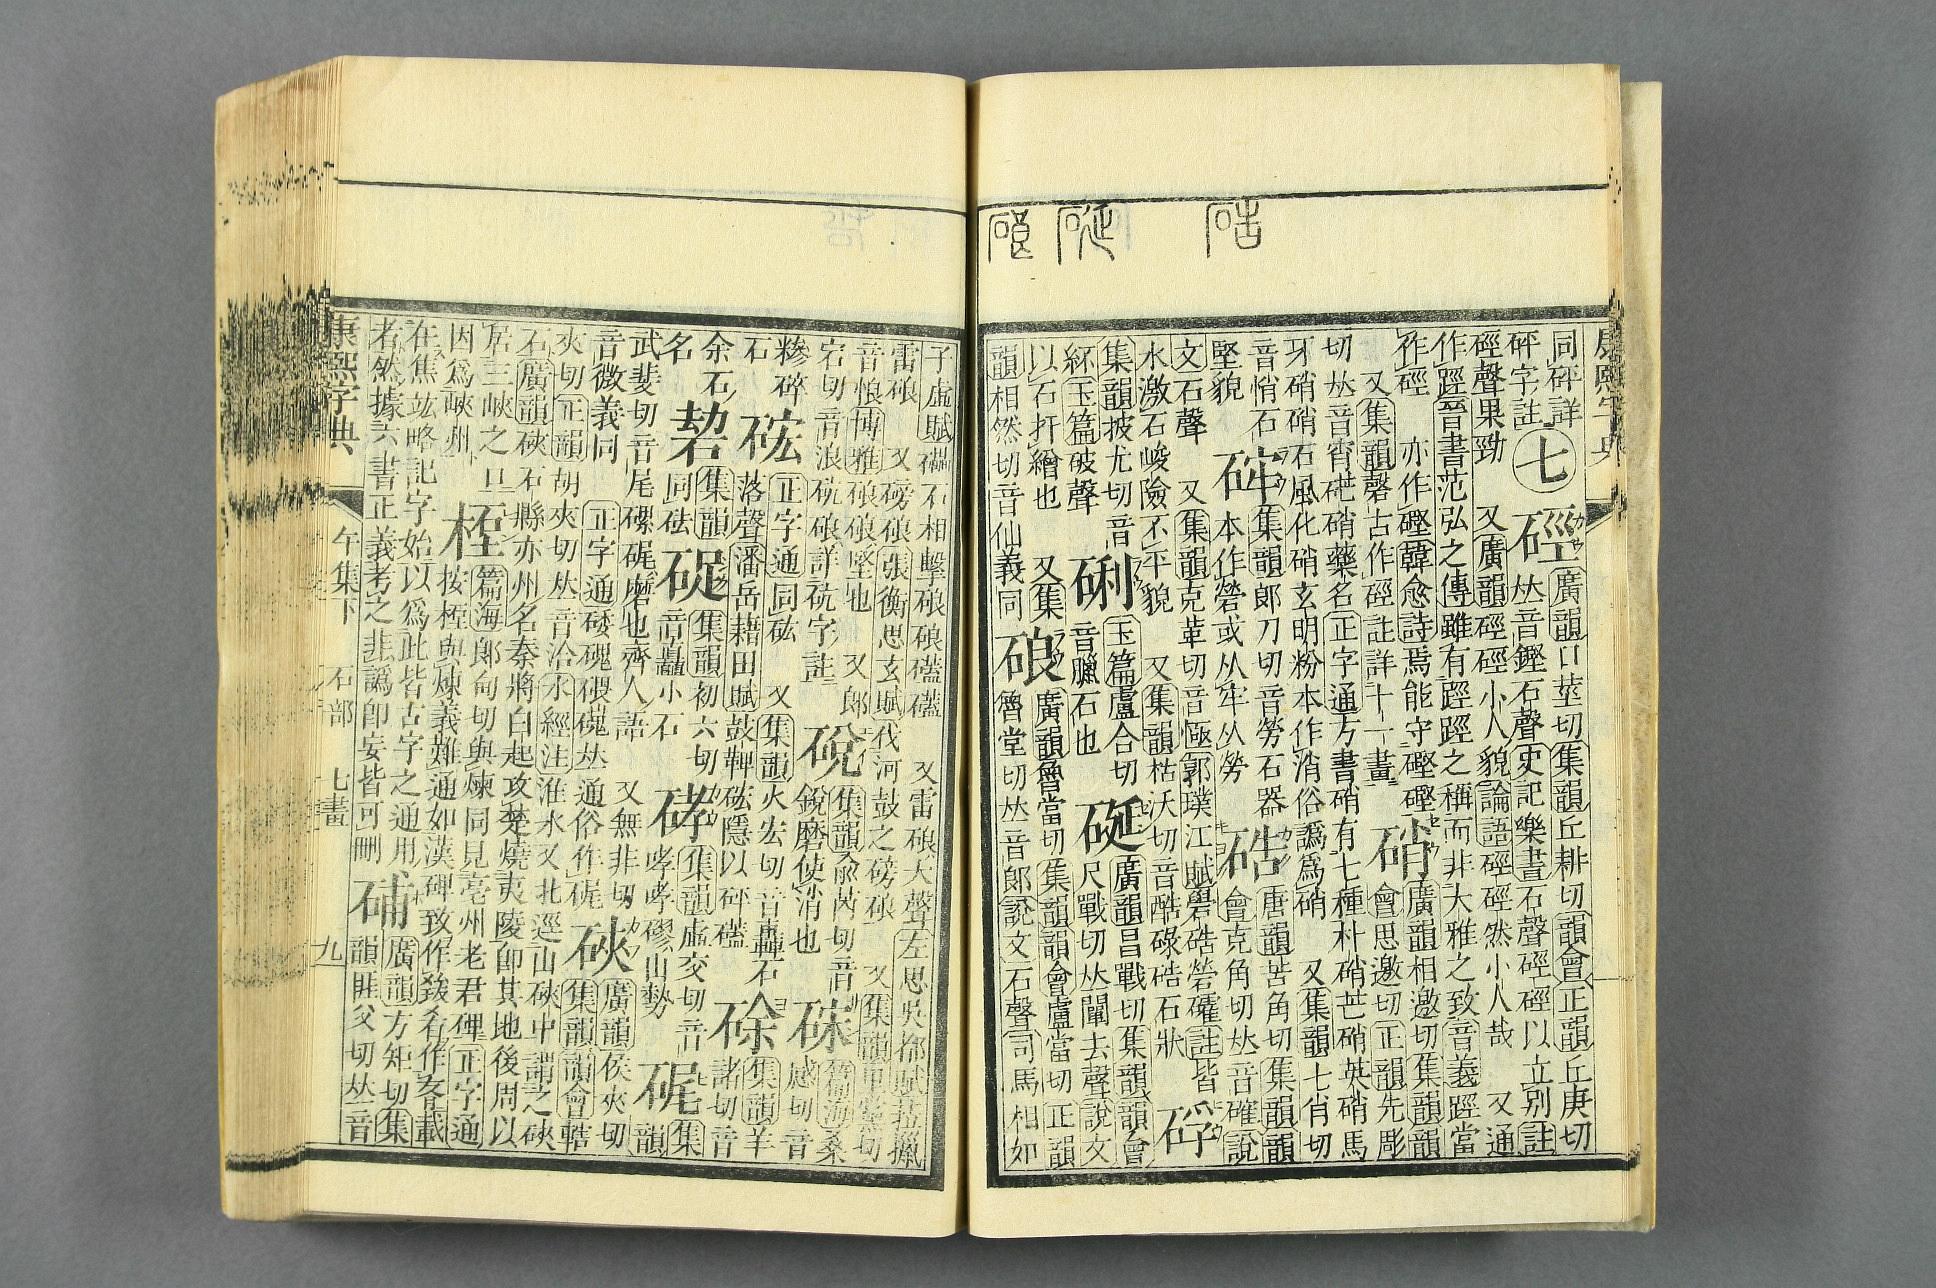 康熙字典
同砰詳
砰字註
七
硜
廣韻口莖切集韻丘耕切韻會正韻丘庚切
𠀤音鏗石聲史記樂書石聲硜硜以立別註
硜聲果勁 又廣韻硜硜小人貌論語硜硜然小人哉 又通
作踁晉書范弘之傳雖有踁踁之稱而非大雅之致音義踁當
作硜 亦作硻韓愈詩焉能守硻硻
又集韻磬古作硜註詳十一畫
硝
廣韻相邀切集韻韻
會思邀切正韻先彫
切𠀤音宵硭硝藥名正字通方書硝有七種朴硝芒硝英硝馬
牙硝硝石風化硝玄明粉本作消俗譌爲硝 又集韻七肖切
音悄石
堅貌
集韻郎刀切音勞石器
本作或从牢从勞
硞
唐韻苦角切集韻韻
會克角切𠀤音確說
文石聲 又集韻克革切音郭璞江賦礐硞礭註皆
水激石峻險不平貌 又集韻枯沃切音酷碌硞石狀
集韻披尤切音
玉篇破聲
玉篇盧合切
音臘石也
硟
廣韻昌戰切集韻韻會
尺戰切𠀤闡去聲說文
以石扞繒也 又集
韻相然切音仙義同
硠
廣韻魯當切集韻韻會盧當切正韻
魯堂切𠀤音郎說文石聲司馬相如
子虛賦礧石相擊硠硠礚礚 又雷硠大聲左思吳都賦菈擸
雷硠 又磅硠張衡思玄賦伐河鼓之磅硠 又集韻里黨切
音悢博雅硠硠堅也 又郎
宕切音浪硄硠詳硄字註
集韻俞芮切音
銳磨使消也
篇海桑
感切音
糝碎
石
硡
正字通同砿 又集韻火宏切音轟石
落聲潘岳藉田賦鼓鞞硡隱以砰礚
硢
集韻羊
諸切音
余石
名
硩
集韻
同砝
集韻初六切
音矗小石
硣
集韻虛交切音
哮哮山勢
集
韻
武斐切音尾磥磨也齊人語 又無非切
音微義同 正字通磈碨𠀤通俗作
硤
廣韻侯夾切
集韻韻會轄
夾切正韻胡夾切𠀤音洽水經注淮水又北逕山硤中謂之硤
石廣韻硤石縣亦州名秦將白起攻楚燒夷陵卽其地後周以
居三峽之口
因爲峽州
篇海郎甸切與煉同見亳州老君碑正字通
按與煉義難通如漢碑致作看作載
在焦竑略記字始以爲此皆古字之通用
者然據六書正義考之非譌卽妄皆可刪
廣韻方矩切集
韻匪父切𠀤音
康熙字典 午集下 石部 七畫 九